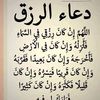 دعاء الرزق
اللَّهُمَّ إِنْ كَانَ رِزْقِي فِي السَّمَاءِ
فَأَنْزِلْهُ وَإِنْ كَانَ فِي الْأَرْضِ
فَأَخْرِجْهُ وَإِنْ كَانَ بَعِيدًا فَقَرِّبْهُ
وَإِنْ كَانَ قَرِيبًا فَيَسِّرْهُ وَإِنْ كَانَ
قَلِيلًا فَكَثِّرْهُ وَإِنْ كَانَ كَثِيرًا
فَبَارِكْ لِي فِيهِ